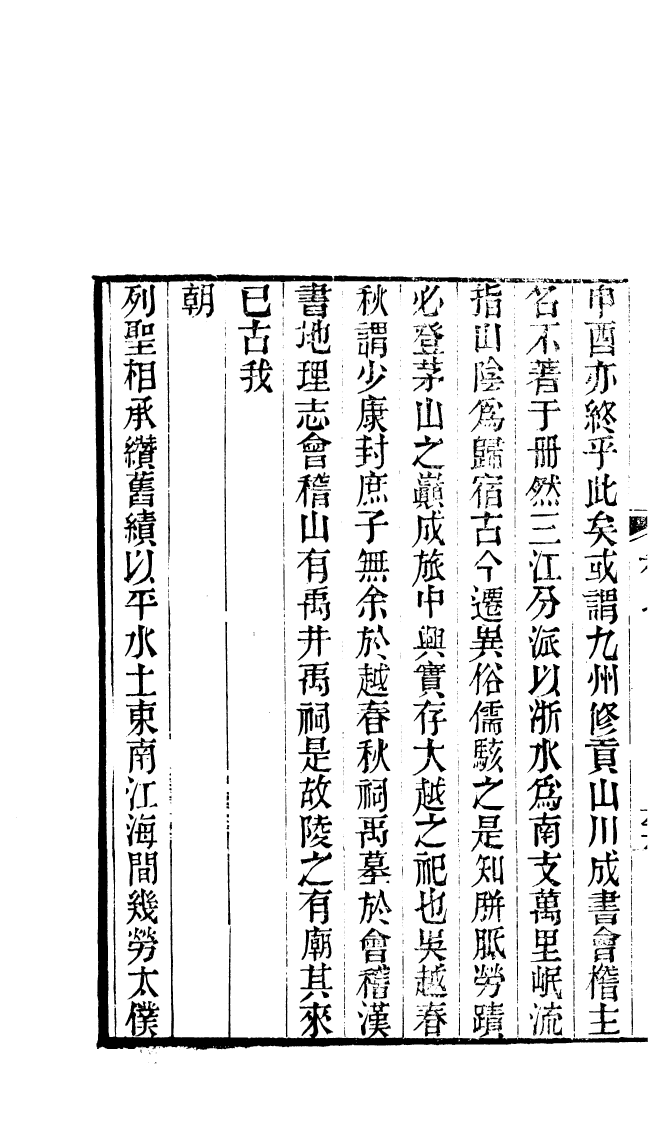 申酉亦終乎此矣或謂九州修貢山川成書會稽主
名不著于冊然三江分派以浙水爲南支萬里岷流
指山陰爲歸宿古今遷異俗儒駭之是知胼胝勞蹟
必登茅山之巔成旅中興實存大越之祀也吳越春
秋謂少康封庶子無余於越春秋祠禹墓於會稽漢
書地理志會稽山有禹井禹祠是故陵之有廟其來
已古我
朝
列聖相承纘舊績以平水土東南江海間幾勞太僕